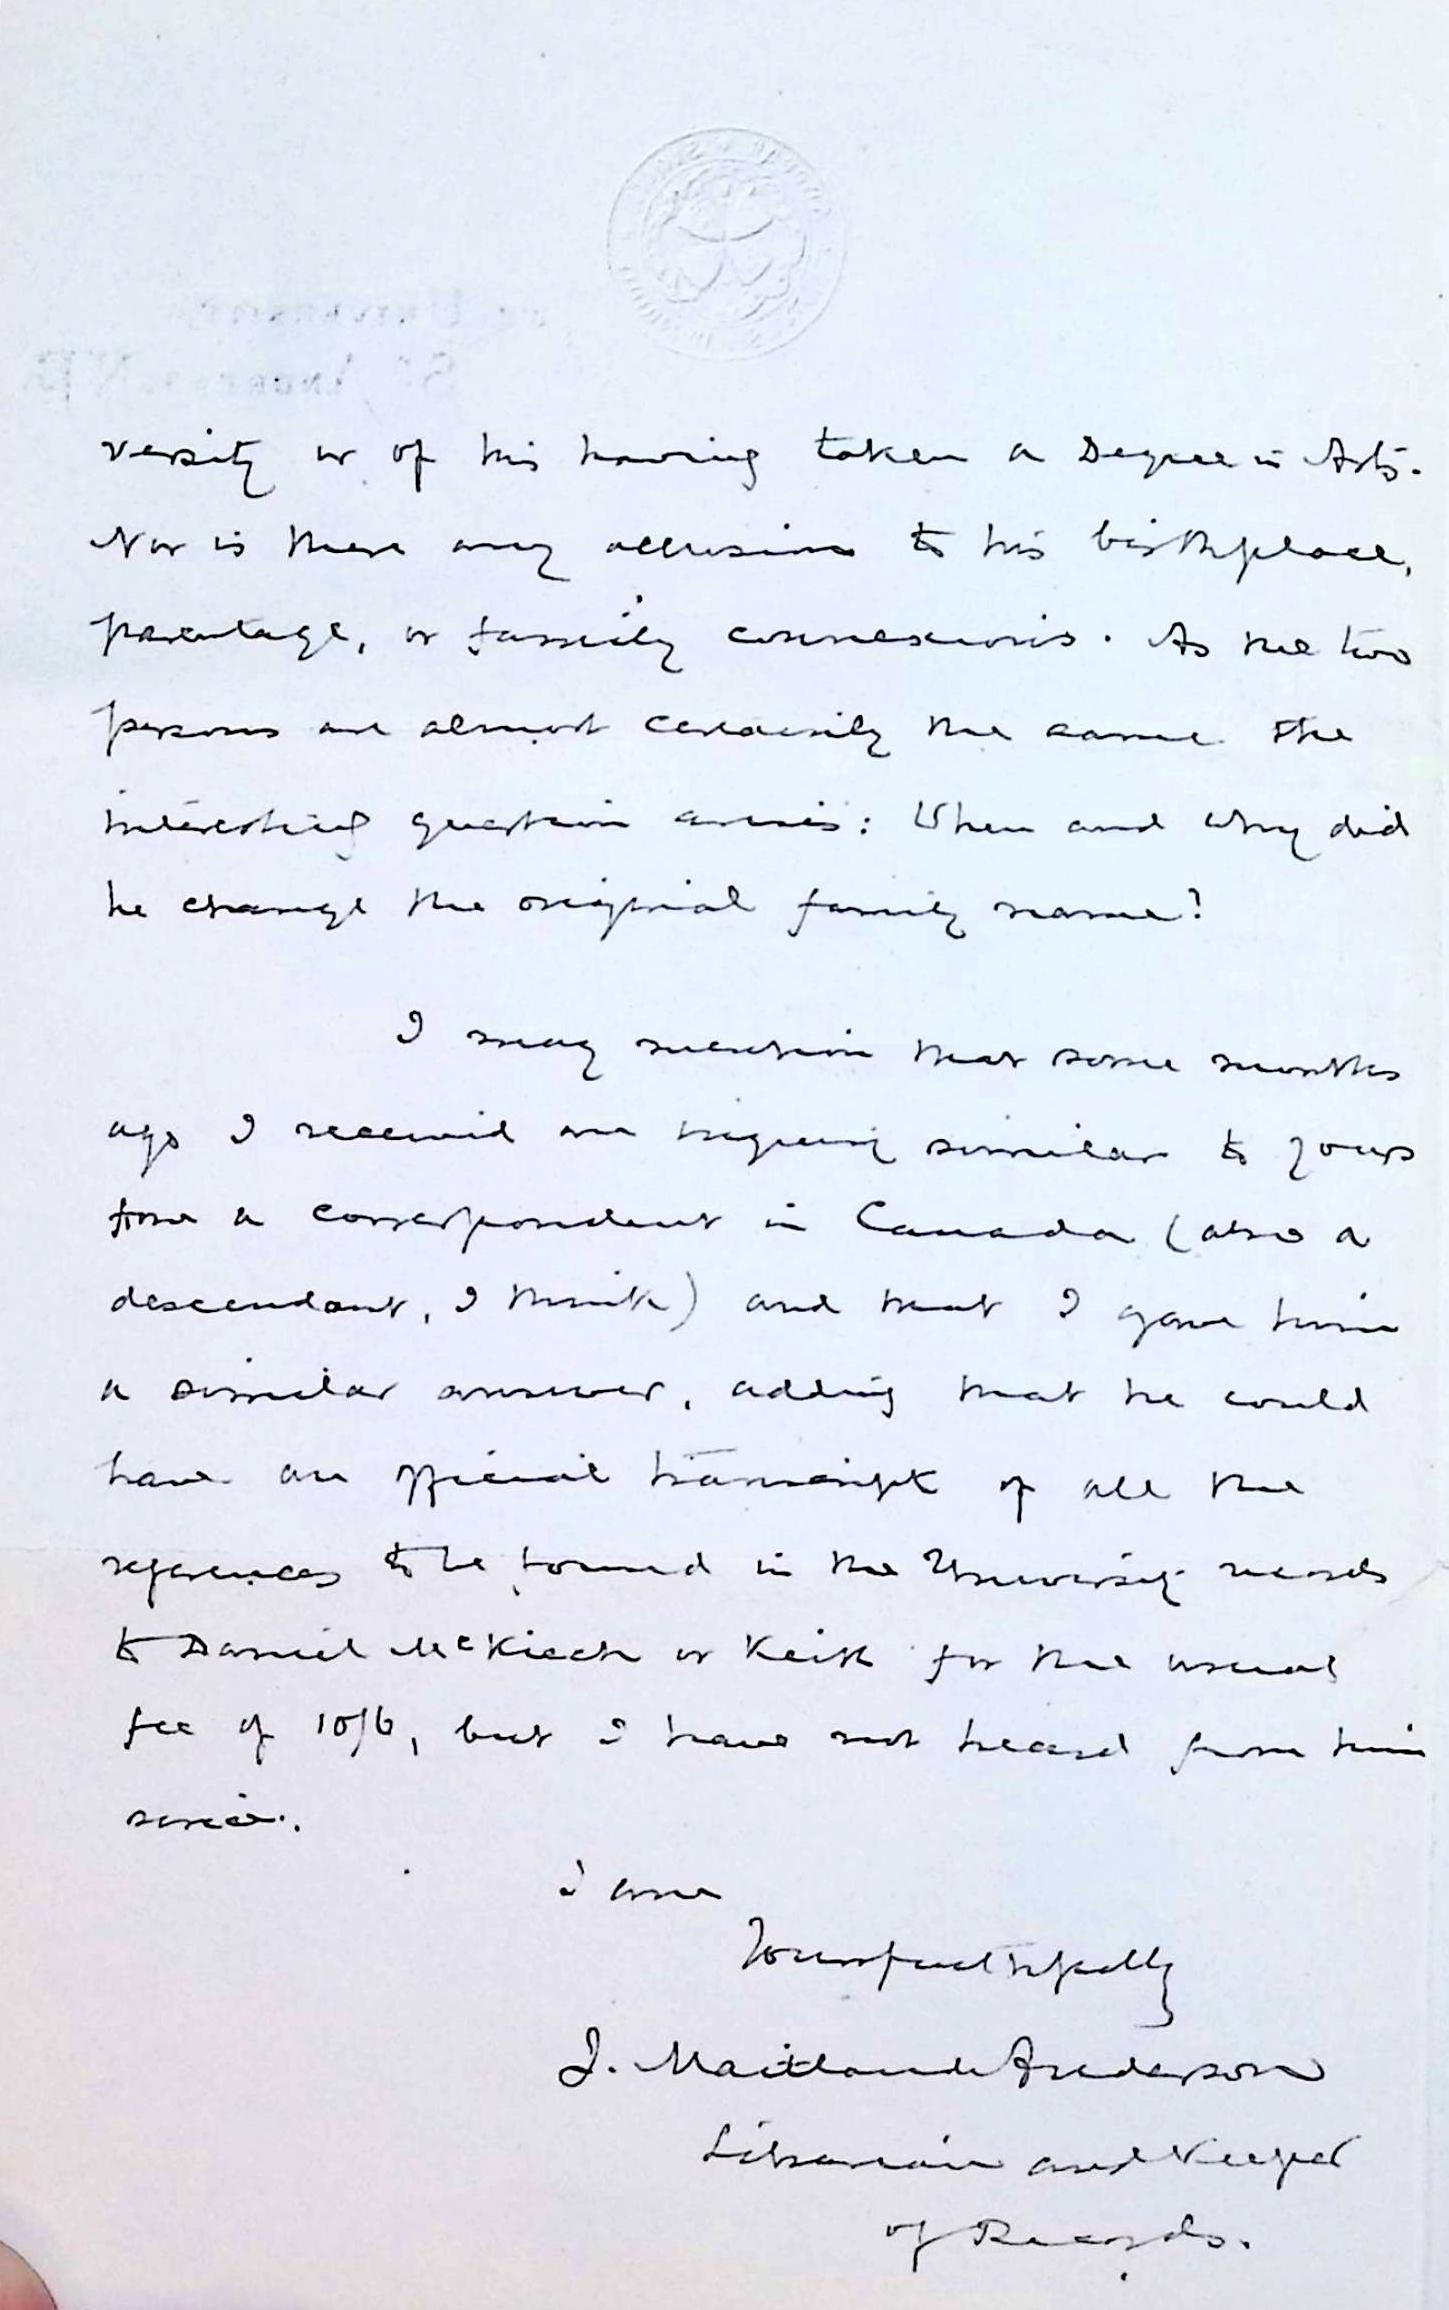 versity or of his having taken a Degree in Arts.
Nor is there any allusion to his birthplace,
parentage, or family connexions. As the two
persons are almost certainly the same the
interesting question arises: When and why did
he change the original family name?
I may mention that some months
ago I received an inquiry similar to yours
from a correspondent in Canada (also a
descendant, I think) and that I gave him
a similar answer, adding that he could
have an official transcript of all the
references to be found in the University records
to Daniel McKiech or Keith for the usual
fee of 10/6, but I have not heard from him
since.
I am
Yours faithfully
J. Maitland Anderson
Librarian and Keeper
of Records.